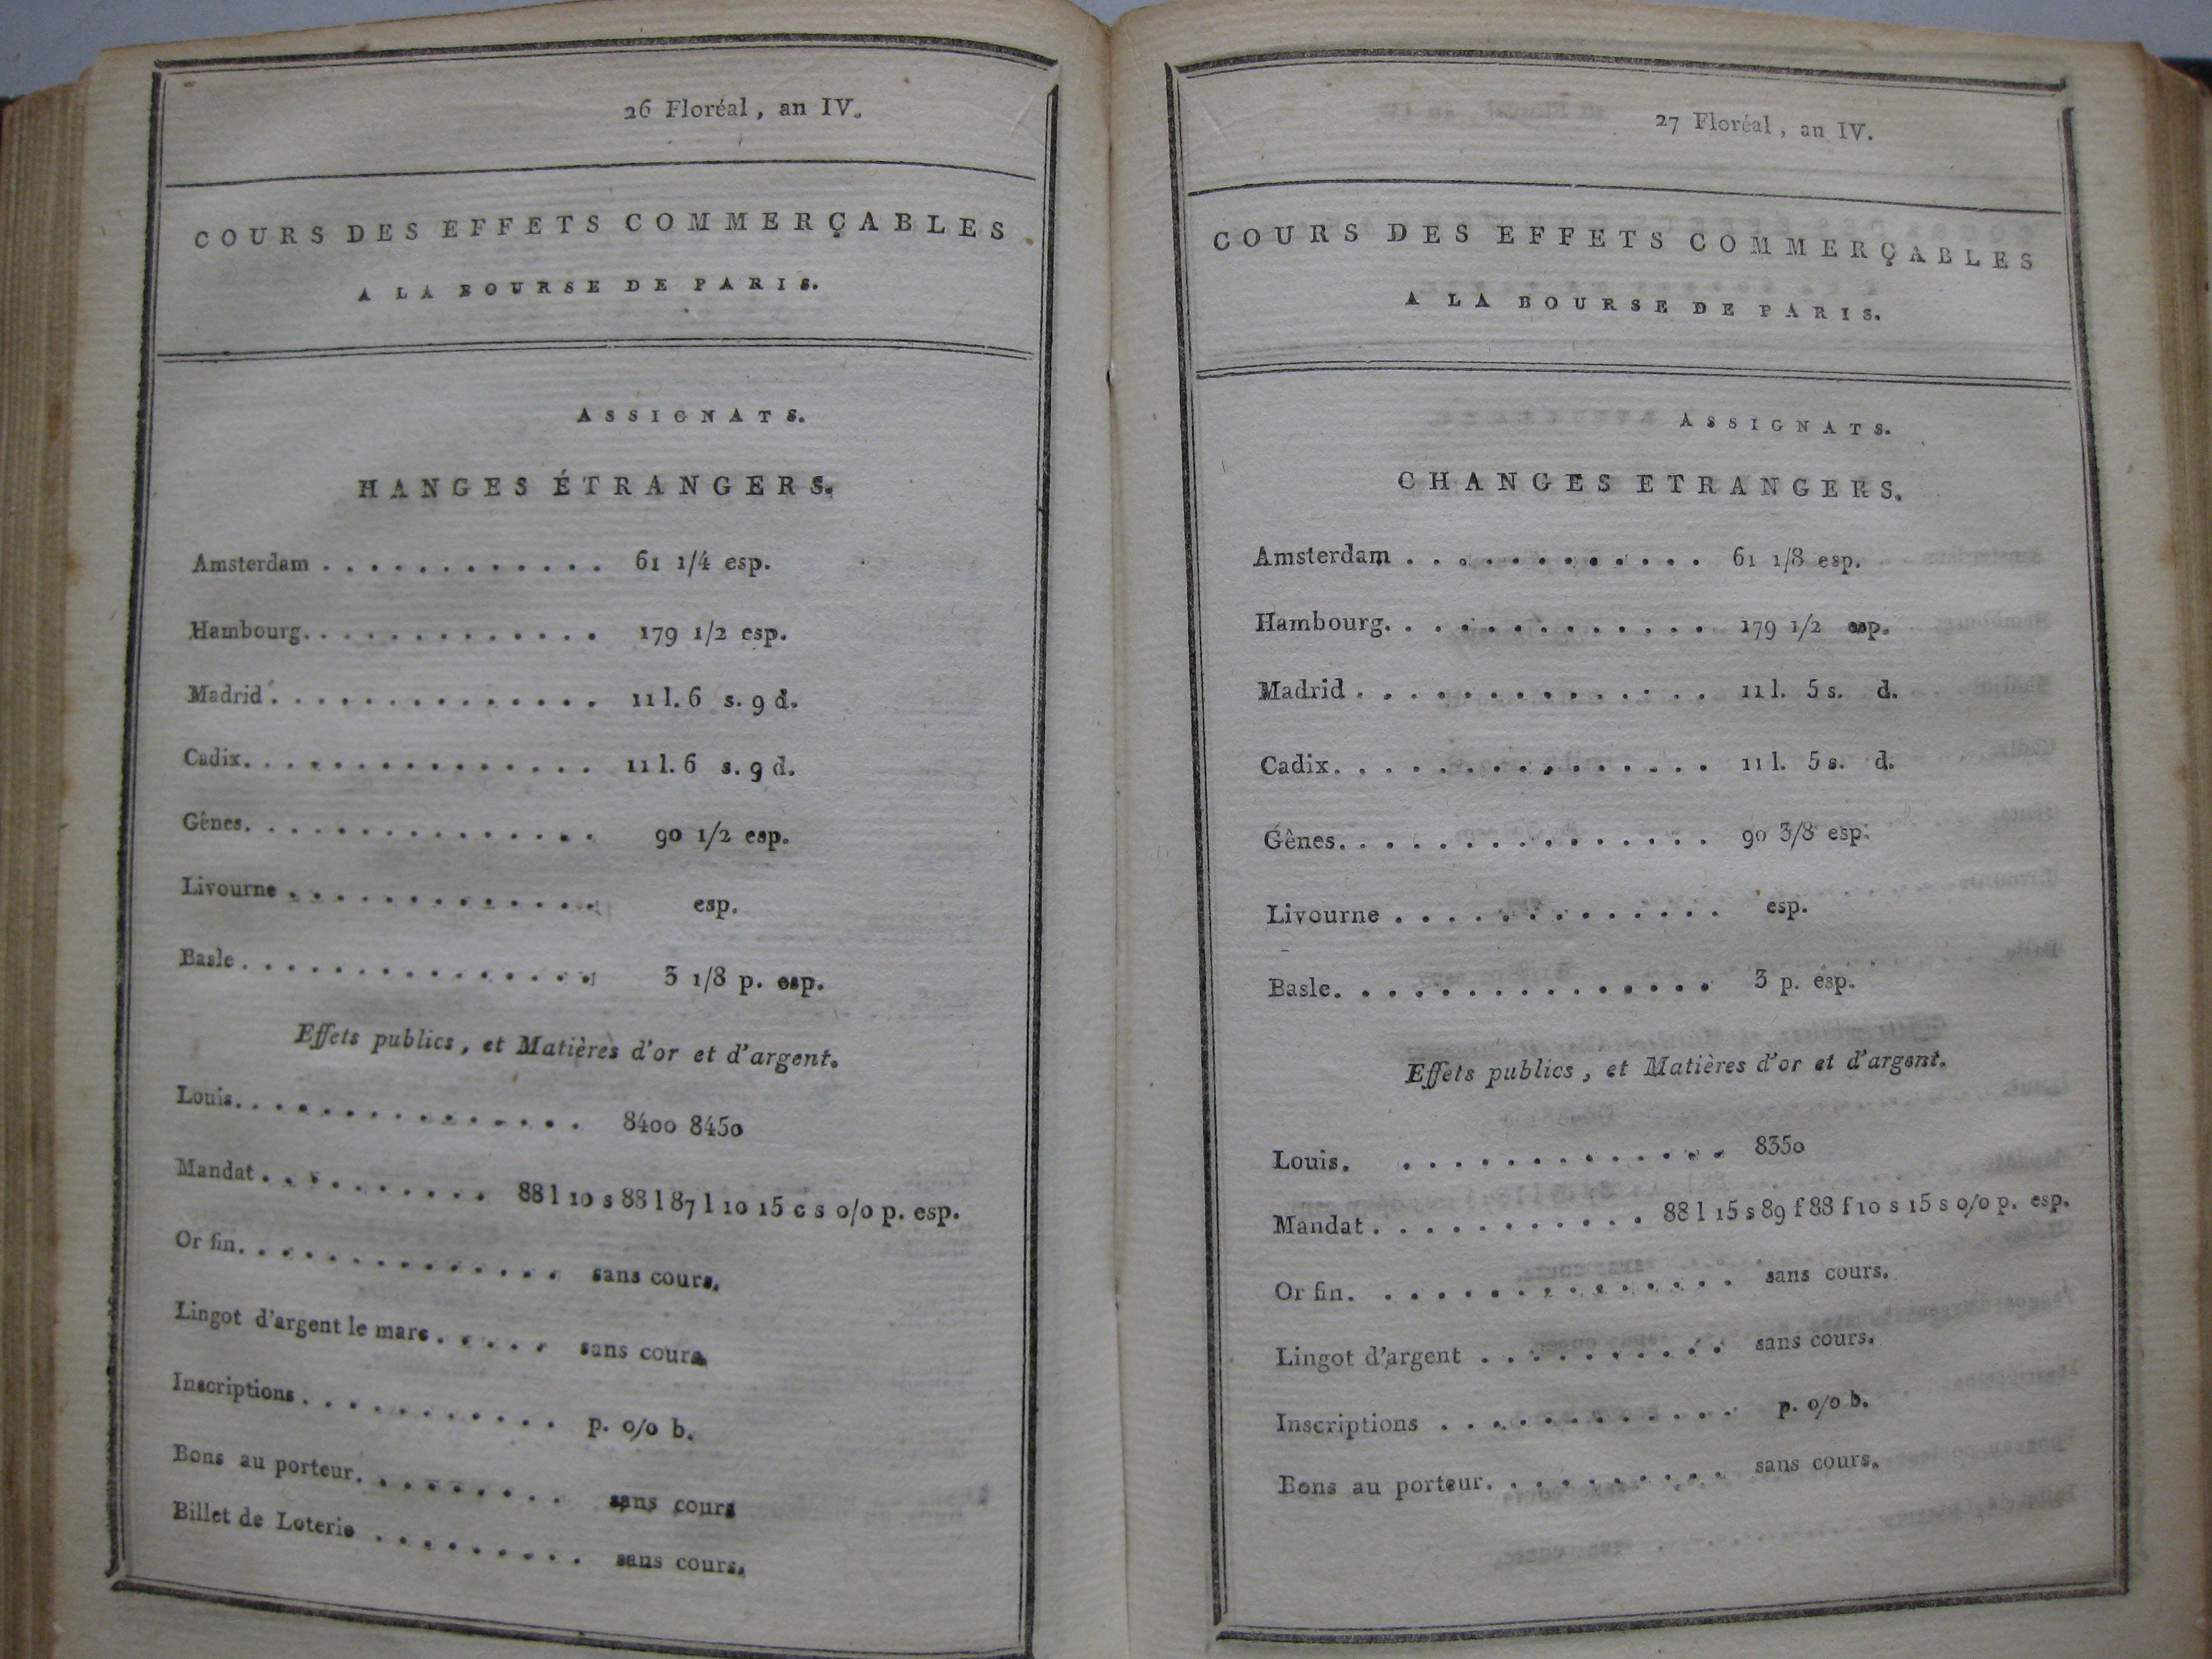 26 Floréal, an IV.
COURS DES EFFETS COMMERÇABLES
A LA BOURSE DE PARIS.
ASSIGNATS.
HANGES ÉTRANGERS.
Amsterdam . . . . . . . . . . . . 61 1/4 esp.
Hambourg. . . . . . . . . . . . . 179 1/2 esp.
Madrid . . . . . . . . . . . . . . 11 l. 6 s. 9 d.
Cadix. . . . . . . . . . . . . . . 11 l. 6 s. 9 d.
Gênes. . . . . . . . . . . . . . . 90 1/2 esp.
Livourne . . . . . . . . . . . . . esp.
Basle . . . . . . . . . . . . . . . 3 1/8 p. esp.
Effets publics, et Matières d'or et d'argent.
Louis. . . . . . . . . . . . . . . 8400 8450
Mandat . . . . . . . . . . 88 l 10 s 88 l 87 l 10 15 c s 0/0 p. esp.
Or fin. . . . . . . . . . . . . . sans cours.
Lingot d'argent le marc . . . . . sans cours
Inscriptions . . . . . . . . . . . p. 0/0 b.
Bons au porteur. . . . . . . . . sans cours
Billet de Loterie . . . . . . . . . sans cours.
27 Floréal, an IV.
COURS DES EFFETS COMMERÇABLES
A LA BOURSE DE PARIS.
ASSIGNATS.
CHANGES ETRANGERS.
Amsterdam . . . . . . . . . . . . 61 1/8 esp.
Hambourg. . . . . . . . . . . . . 179 1/2 esp.
Madrid . . . . . . . . . . . . . . 11 l. 5 s. d.
Cadix. . . . . . . . . . . . . . . 11 l. 5 s. d.
Gênes. . . . . . . . . . . . . . . 90 3/8 esp.
Livourne . . . . . . . . . . . . . esp.
Basle. . . . . . . . . . . . . . . 3 p. esp.
Effets publics, et Matières d'or et d'argent.
Louis. . . . . . . . . . . . . 8350
Mandat . . . . . . . . . . . 88 l 15 s 89 f 88 f 10 s 15 s 0/0 p. esp.
Or fin. . . . . . . . . . . . . . sans cours.
Lingot d'argent . . . . . . . . . . sans cours.
Inscriptions . . . . . . . . . . . . p. 0/0 b.
Bons au porteur. . . . . . . . . . sans cours.